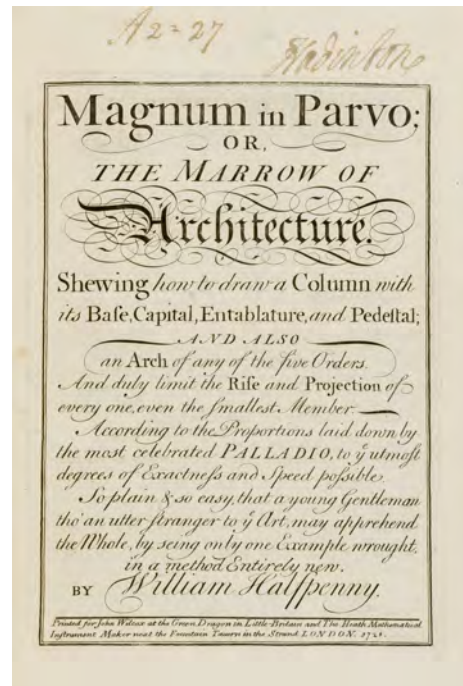 A 2=27
Magnum in Parvo;
OR,
THE MARROW OF
Architecture.
Shewing how to draw a Column with
its Baſe, Capital, Entablature, and Pedeſtal;
AND ALSO
an Arch of any of the five Orders.
And duly limit the Riſe and Projection of
every one, even the ſmallest Member.
According to the Proportions laid down by
the most celebrated PALLADIO, to ẏ utmoſt
degrees of Exactneſs and Speed poſsible.
So plain & so easy, that a young Gentleman
tho' an utter ſtranger to ẏ Art, may apprehend
the Whole, by seing only one Example wrought,
in a method Entirely new.
BY William Halfpenny.
Printed for John Wilcox at the Green Dragon in Little-Britain and Tho. Heath Mathematical
Inſtrument Maker next the Fountain Tavern in the Strand LONDON.